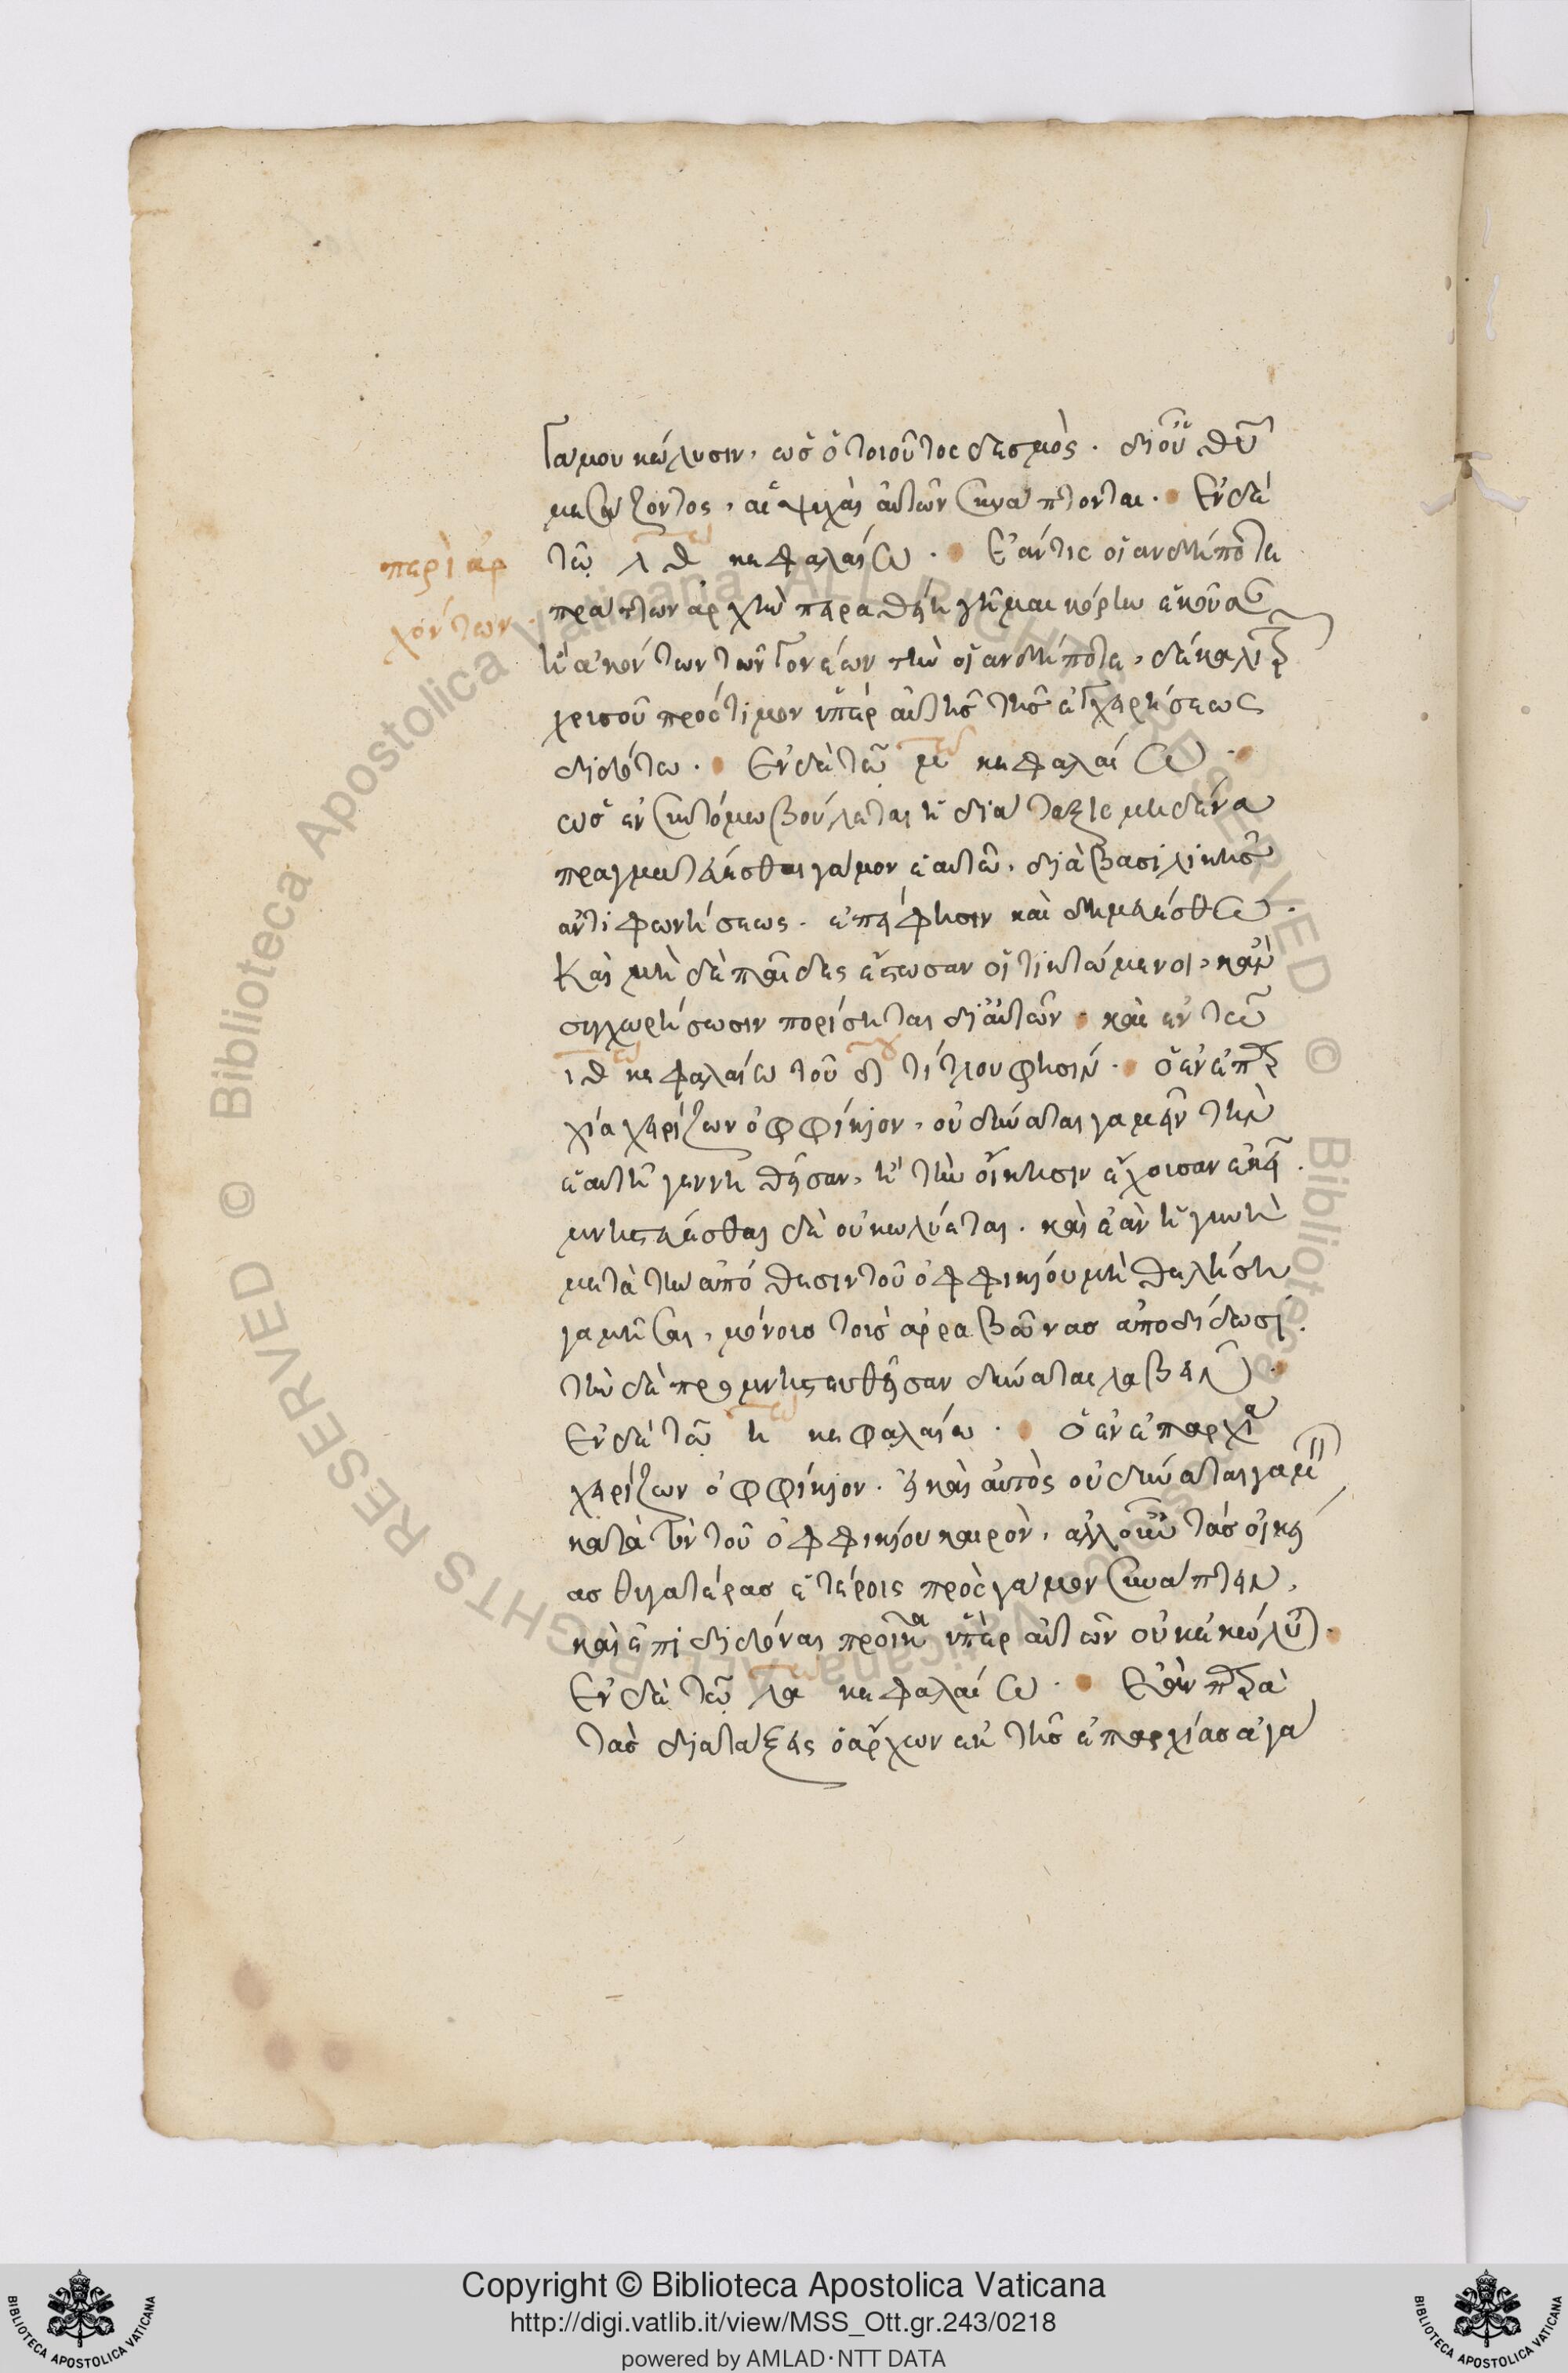 γάμου κώλυσιν, ὡς ὁ τοιοῦτος δεσμὸς. δι οὗ θυ
μεσάζοντος, αἱ ψυχὰι αὐτῶν συνάπτονται. Ἐν δὲ
τῷ λθ κεφαλαίω. Ἐάν τις οἱανδήποτε
περὶ ἀρ
χόντων.
πράττων ἀρχὴν πειραθείη γῆμαι κόρην ἑκοῦσαν
ἢ ἀκόντων τῶν γονέων την οἱανδήποτε, δέκα λίτρ
χρυσοῦ πρόστιμον ὑπὲρ αὐτῆς τῆς ἐγχειρήσεως
διδότω. Ἐν δὲ τῷ μ κεφαλαίω.
ὡς ἐν συντόμω βούλεται ἡ διάταξις μηδένα
πραγματεύεσθαι γάμον ἑαυτῶ, διὰ βασιλικῆς
ἀντιφωνήσεως. ἐπεί φησιν καὶ δημευέσθω.
Καὶ μὴ δὲ παῖδες ἔστωσαν οἱ τικτόμενοι, κἂν
συγχωρήσωσιν πορίσηται δι αὐτῶν. καὶ ἐν τῶ
ιθ κεφαλαίω τοῦ δ τίτλου φησίν. ὁ ἐν ἐπαρ
χία χειρίζων ὀφφίκιον, οὐ δύναται γαμεῖν τὴν
ἐν αὐτῆ γεννηθεῖσαν, ἢ τὴν οἴκησιν ἔχουσαν ἐκεῖ.
μνηστεύεσθαι δὲ οὐ κωλύεται. καὶ ἐὰν ἡ γυνὴ
μετὰ τὴν ἀπόθεσιν τοῦ ὀφφικίου μὴ θελήση
γαμῆσαι, μόνους τοὺς ἀρραβῶνας ἀποδίδωσι.
τὴν δὲ προμνηστευθεῖσαν δύναται λαβεῖν.
Ἐν δὲ τῷ κ κεφαλαίω. ὁ ἐν ἐπαρχία
χειρίζων ὀφφίκιον. εἰ καὶ αὐτὸς οὐ δύναται γαμεῖν
κατὰ τὸν τοῦ ὀφφικίου καιρὸν, ἀλλ οὖν τὰς οἰκεί
ας θυγατέρας ἑτέροις πρὸς γάμον συνάπτειν,
καὶ ἐπιδιδόναι προῖκα ὑπὲρ αὐτῶν οὐ κεκώλυται.
Ἐν δὲ τῷ λα κεφαλαίω. Ἐὰν παρὰ
τὰς διατάξεις ὁ ἄρχων ἐκ τῆς ἐπαρχίας ἀγά
Copyright © Biblioteca Apostolica Vaticana
http://digi.vatlib.it/view/MSS_Ott.gr.243/0218
powered by AMLAD·NTT DATA